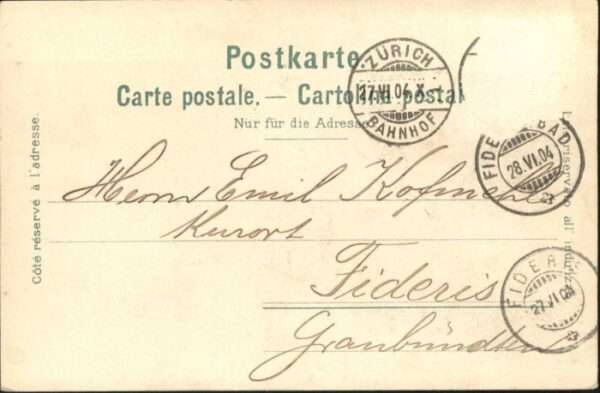 Postkarte
Carte postale. — Cartolina postal
Nur für die Adresse
Côté réservé à l'adresse.
ZÜRICH
27.VI.04.X
BAHNHOF
FIDE BAD
28.VI.04
FIDERIS
27.VI.04
Herrn Emil Kofmehl
Kurort
Fideris
Graubünden